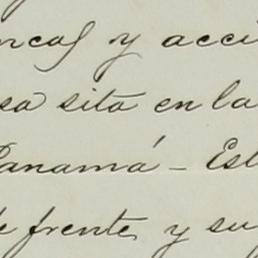 ncas y acci
sa sita en la
Panamá - Est
de frente, y su